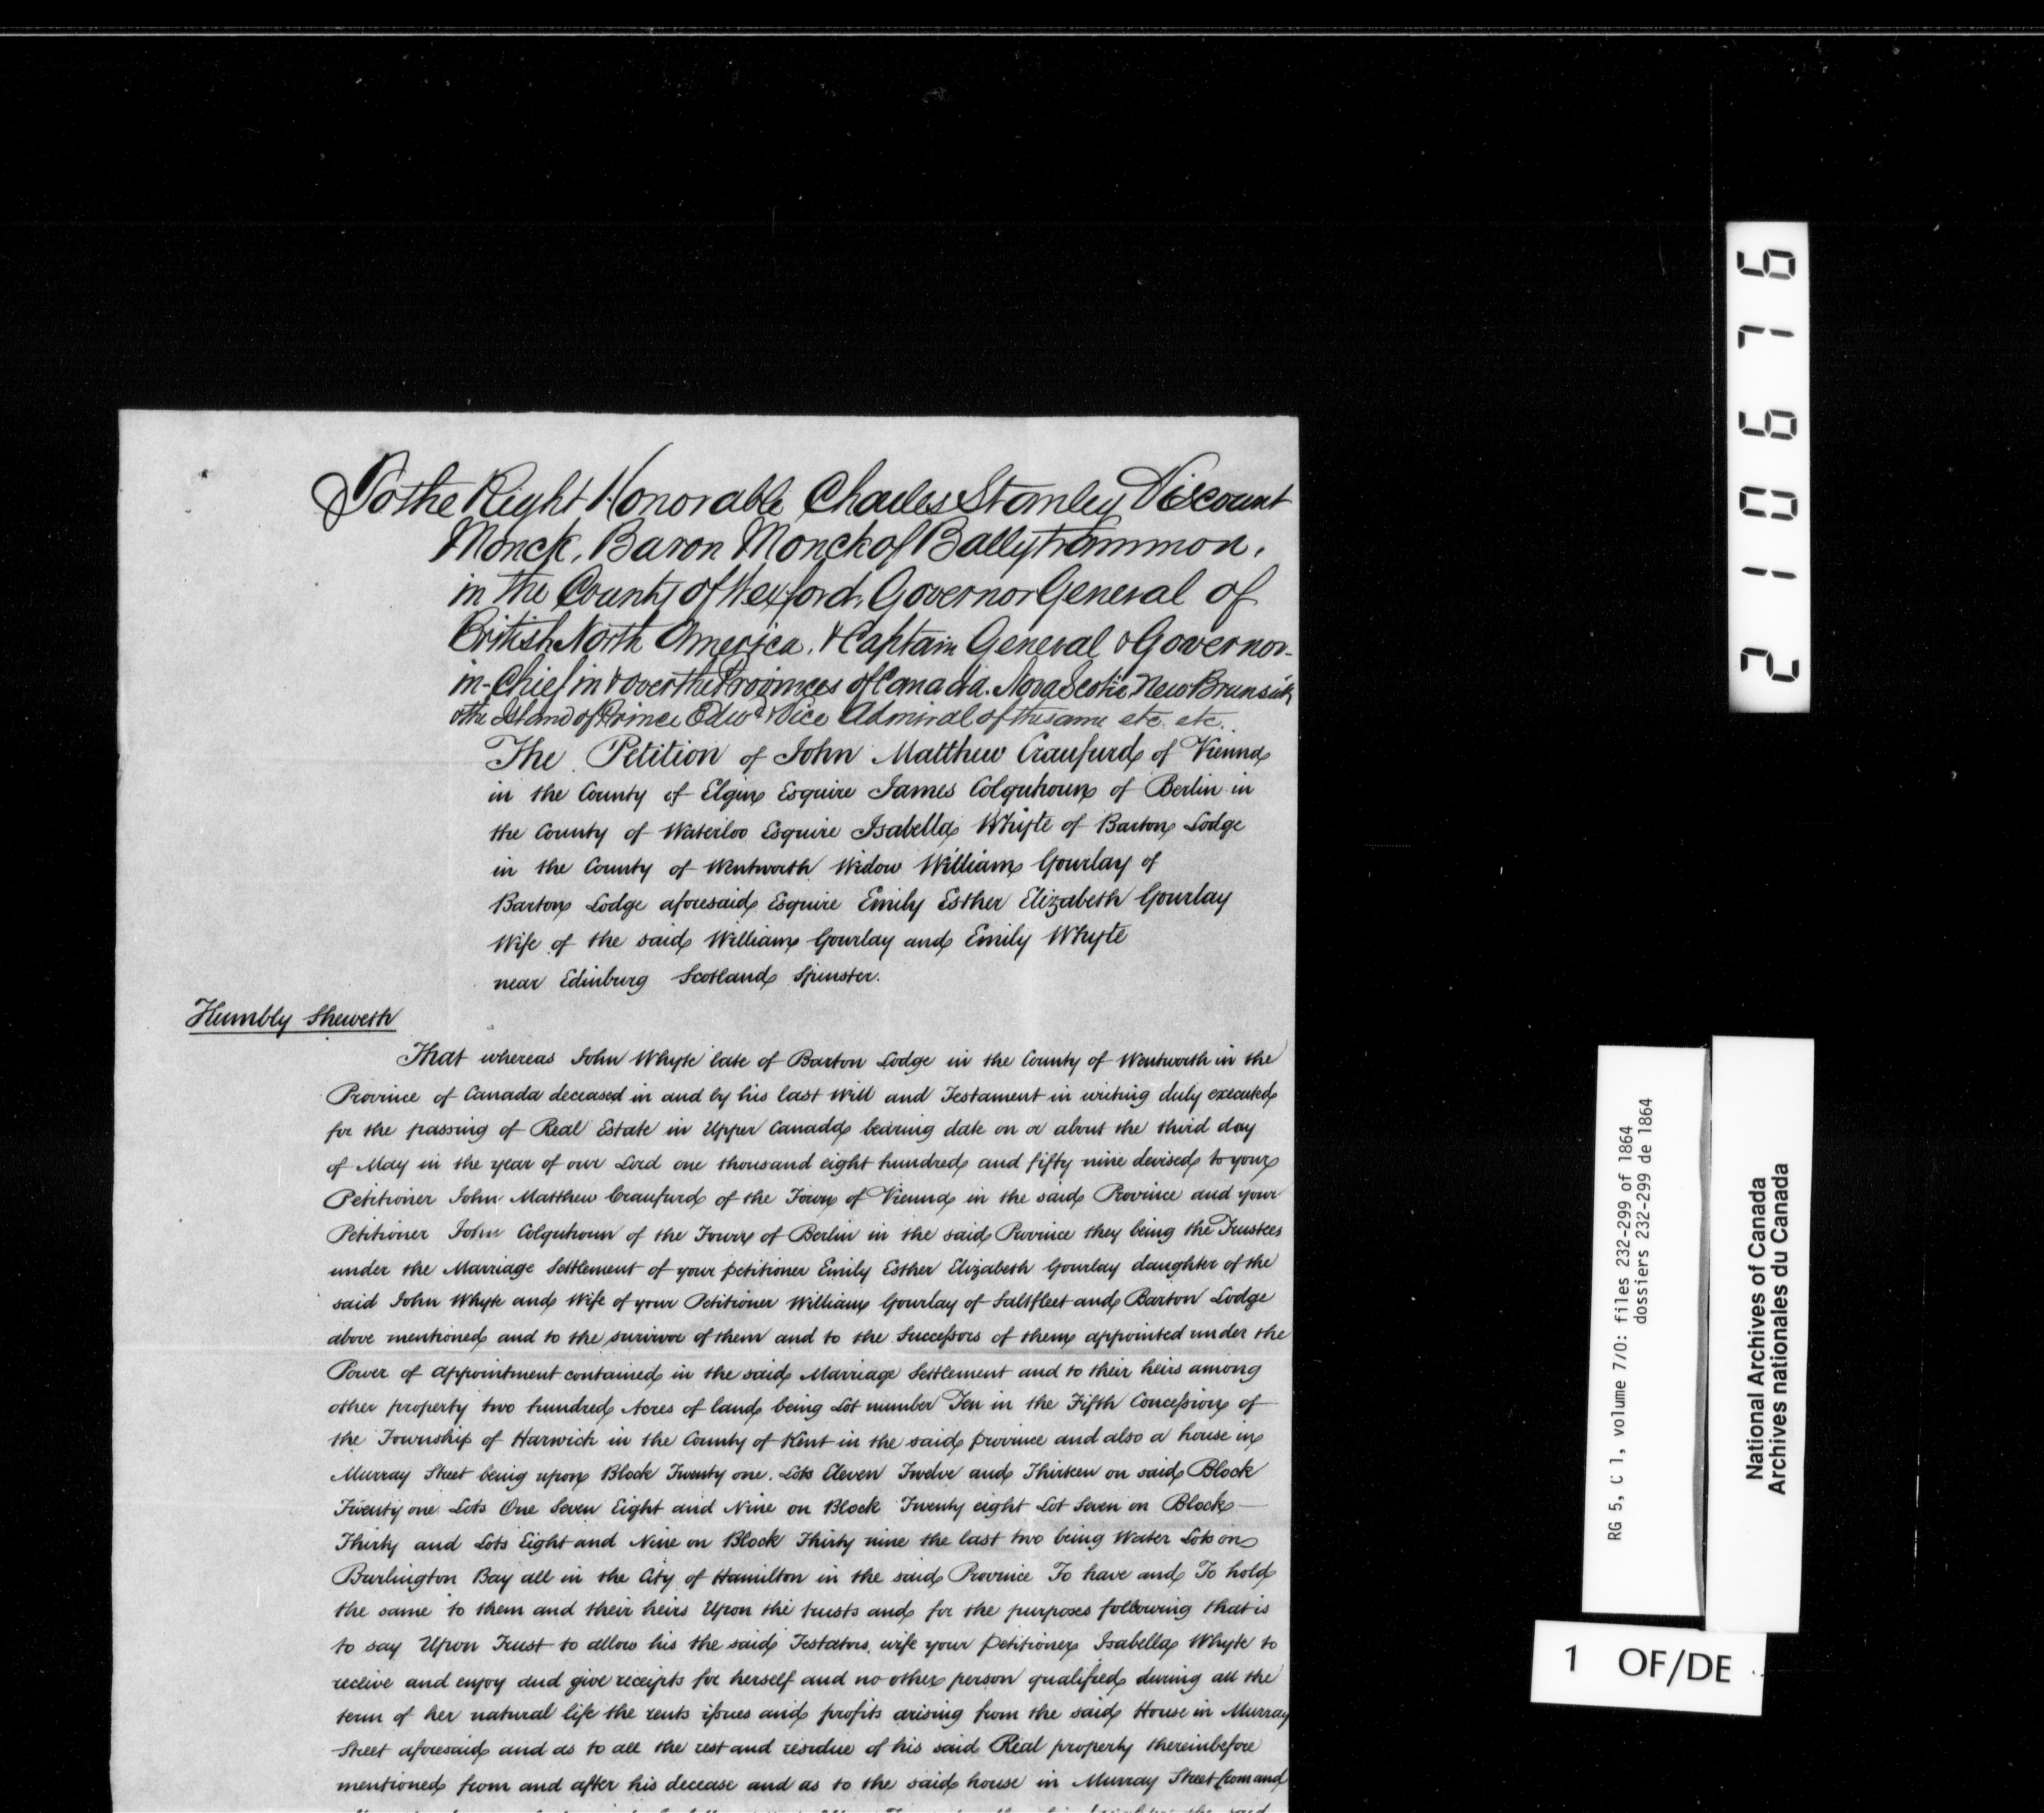 To the Right Honorable Charles Stanley Viscount
Monck, Baron Monck of Ballytrammon,
in the County of Wexford, Governor General of
British North America, & Captain General & Governor-
in-Chief in & over the Provinces of Canada. Nova Scotia New Brunsick
& the Island of Prince Edwd & Vice Admiral of the same etc. etc.
The Petition of John Matthew Craufurd of Vienna
in the County of Elgin Esquire James Colquhoun of Berlin in
the County of Waterloo Esquire Isabella Whyte of Barton Lodge
in the County of Wentworth Widow William Gourlay of
Barton Lodge aforesaid Esquire Emily Esther Elizabeth Gourlay
Wife of the said William Gourlay and Emily Whyte
near Edinburg Scotland Spinster.
Humbly Sheweth
That whereas John Whyte late of Barton Lodge in the County of Wentworth in the
Province of Canada deceased in and by his last Will and Testament in writing duly executed
for the passing of Real Estate in Upper Canada bearing date on or about the third day
of May in the year of our Lord one thousand eight hundred and fifty nine devised to your
Petitioner John Matthew Craufurd of the Town of Vienna in the said Province and your
Petitioner John Colquhoun of the Town of Berlin in the said Province they being the Trustees
under the Marriage Settlement of your petitioner Emily Esther Elizabeth Gourlay daughter of the
said John Whyte and Wife of your Petitioner William Gourlay of Saltfleet and Barton Lodge
above mentioned and to the survivor of them and to the Successors of them appointed under the
Power of appointment contained in the said Marriage Settlement and to their heirs among
other property two hundred Acres of land being Lot number Ten in the Fifth Concession of
the Township of Harwich in the County of Kent in the said province and also a house in
Murray Street being upon Block Twenty one. Lots Eleven Twelve and Thirteen on said Block
Twenty one Lots One Seven Eight and Nine on Block Twenty eight Lot Seven on Block
Thirty and Lots Eight and Nine on Block Thirty nine the last two being Water Lots on
Burlington Bay all in the City of Hamilton in the said Province To have and To hold
the same to them and their heirs Upon the trusts and for the purposes following that is
to say Upon Trust to allow his the said Testators wife your petitioner Isabella Whyte to
receive and enjoy and give receipts for herself and no other person qualified during all the
term of her natural life the rents issues and profits arising from the said House in Murray
Street aforesaid and as to all the rest and residue of his said Real property thereinbefore
mentioned from and after his decease and as to the said house in Murray Street from and
210676
RG 5, C 1, volume 770: files 232-299 of 1864
dossiers 232-299 de 1864
National Archives of Canada
Archives nationales du Canada
1 OF/DE